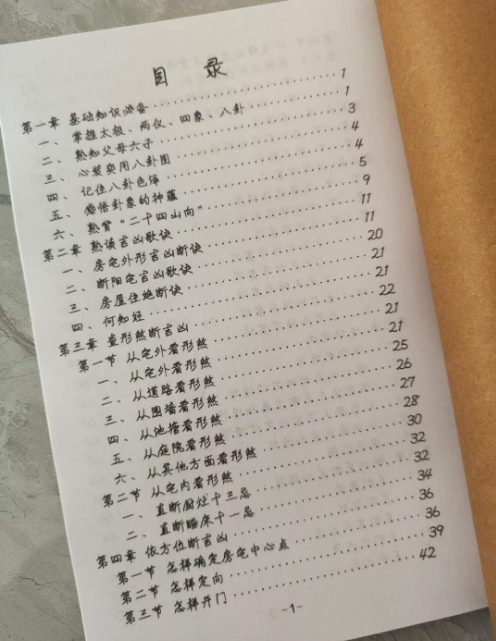 目 录
第一章 基础知识必备 1
一、掌握太极、两仪、四象、八卦 1
二、熟知父母六子 3
三、心装实用八卦图 4
四、记住八卦色彩 4
五、感悟卦象的神蕴 5
六、熟背“二十四山向” 9
第二章 熟读吉凶歌诀 11
一、房宅外形吉凶断诀 11
二、断阳宅吉凶歌诀 20
三、房屋住地断诀 21
四、何知经 21
第三章 查形煞断吉凶 22
第一节 从宅外看形煞 21
一、从宅外看形煞 21
二、从道路看形煞 25
三、从围墙看形煞 26
四、从池塘看形煞 27
五、从庭院看形煞 28
六、从其他方面看形煞 30
第二节 从宅内看形煞 32
一、直断厨灶十三忌 32
二、直断睡床十一忌 34
第四章 依方位断吉凶 36
第一节 怎样确定房宅中心点 36
第二节 怎样定向 39
第三节 怎样开门 42
-1-